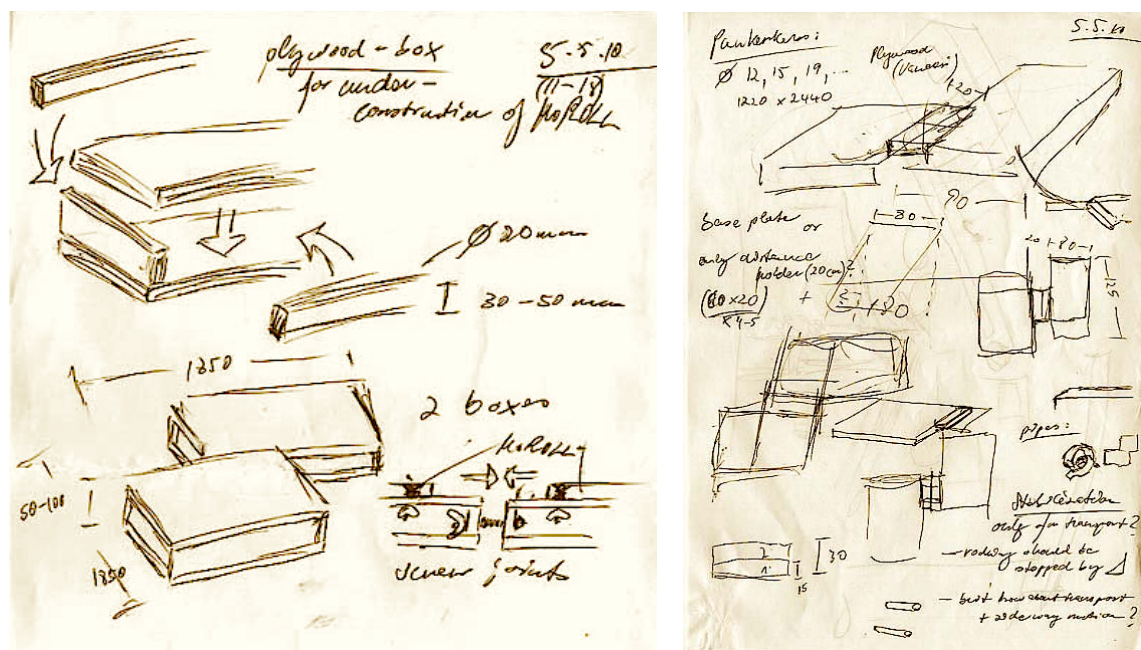 plywood-box
for under-
construction of MoROLL
5.5.10
(11-18)
Ø 20 mm
30-50 mm
1850
2 boxes
MoROLL
50-100
1850
screw joints
5.5.10
Ø 12, 15, 19, ...
1220 x 2440
Plywood
(Vaneri)
120
90
base plate
or
80
only distance
holder (20cm)?
+
80
20 80
125
pipes:
2
1
30
15
only for transport?
- rodwy should be
stopped by
- but how about transport
+ sideway motion?